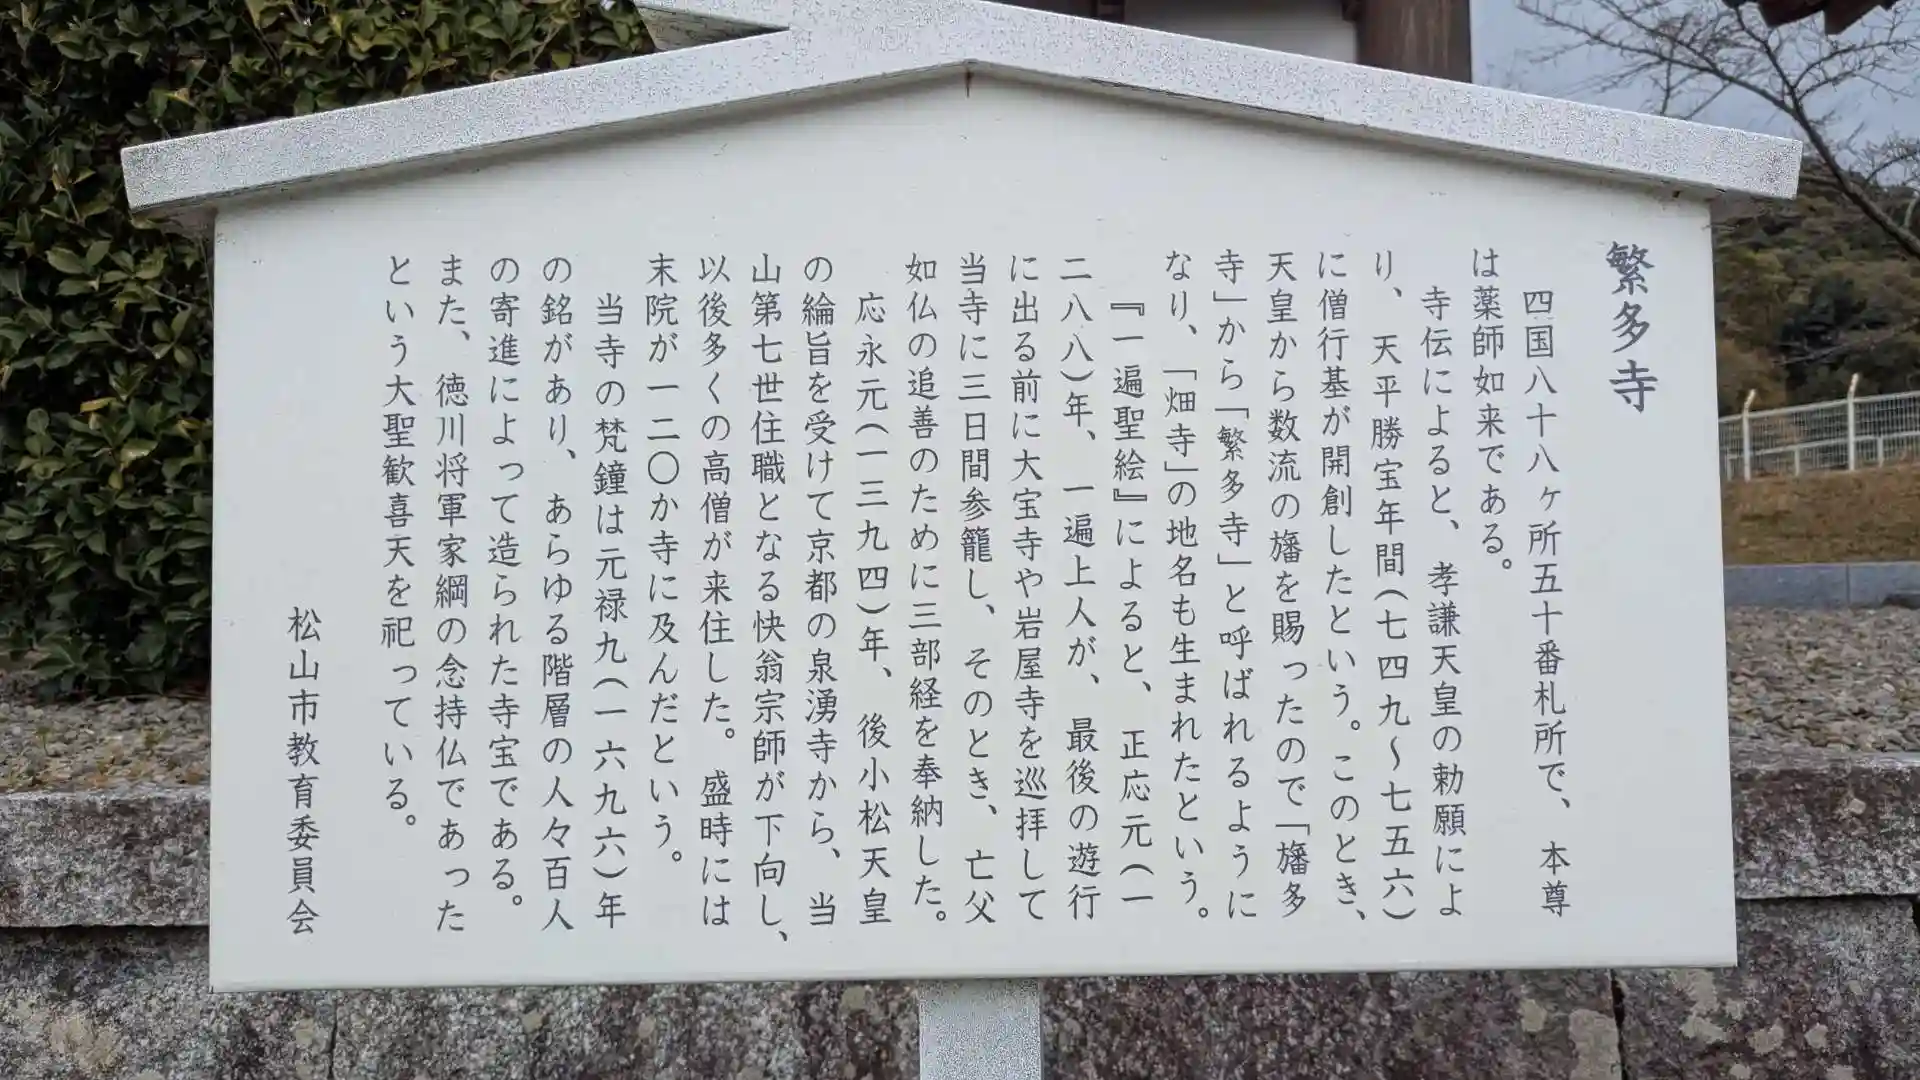 繁多寺
四国八十八ヶ所五十番札所で、本尊
は薬師如来である。
寺伝によると、孝謙天皇の勅願によ
り、天平勝宝年間(七四九～七五六)
に僧行基が開創したという。このとき、
天皇から数流の旛を賜ったので「旛多
寺」から「繁多寺」と呼ばれるように
なり、「畑寺」の地名も生まれたという。
『一遍聖絵』によると、正応元(一
二八八)年、一遍上人が、最後の遊行
に出る前に大宝寺や岩屋寺を巡拝して
当寺に三日間参籠し、そのとき、亡父
如仏の追善のために三部経を奉納した。
応永元(一三九四)年、後小松天皇
の綸旨を受けて京都の泉湧寺から、当
山第七世住職となる快翁宗師が下向し、
以後多くの高僧が来住した。盛時には
末院が一二〇か寺に及んだという。
当寺の梵鐘は元禄九(一六九六)年
の銘があり、あらゆる階層の人々百人
の寄進によって造られた寺宝である。
また、徳川将軍家綱の念持仏であった
という大聖歓喜天を祀っている。
松山市教育委員会